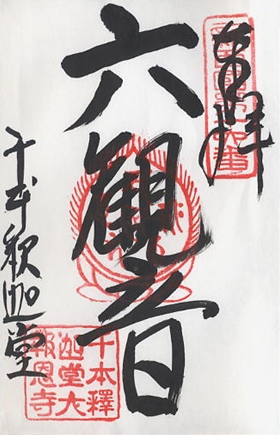 奉拝
六観音
千本釈迦堂
千本釋
迦堂大
報恩寺